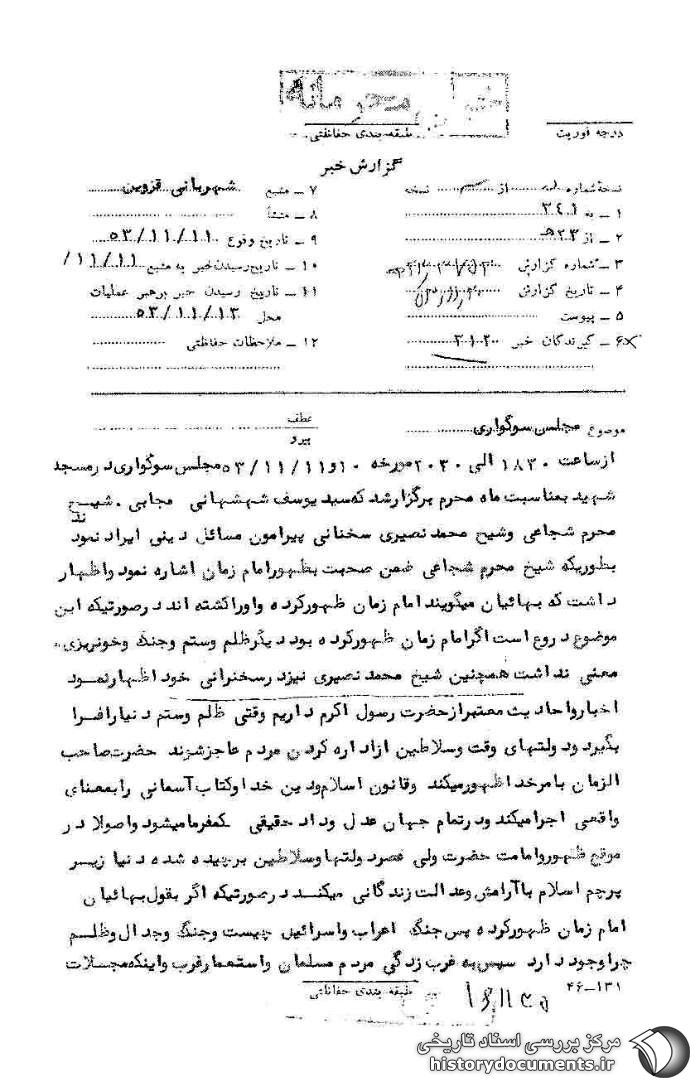 محرمانه
درجه فوریت
طبقه بندی حفاظتی
گزارش خبر
نسخهٔ شماره از نسخه
۱ ـ به ۳۴۱
۲ ـ از ۵۲۳
۳ ـ شماره گزارش
۴ ـ تاریخ گزارش
۵ ـ پیوست
۶ ـ گیرندگان خبر ۲۱۲۰۰
۷ ـ منبع شهربانی قزوین
۸ ـ منشأ
۹ ـ تاریخ وقوع ۵۳/۱۱/۱۱
۱۰ ـ تاریخ رسیدن خبر به منبع ۱۱/۱۱/
۱۱ ـ تاریخ رسیدن خبر برهبر عملیات
محل ۵۳/۱۱/۱۳
۱۲ ـ ملاحظات حفاظتی
موضوع مجلس سوگواری
عطف
پیرو
از ساعت ۱۸۳۰ الی ۲۰۳۰ مورخه ۱۰ و ۵۳/۱۱/۱۱ مجلس سوگواری در مسجد
شهید بمناسبت ماه محرم برگزار شد که سید یوسف شهشهانی مجابی . شیخ
محرم شجاعی و شیخ محمد نصیری سخنانی پیرامون مسائل دینی ایراد نمودند
بطوریکه شیخ محرم شجاعی ضمن صحبت بظهور امام زمان اشاره نمود و اظهار
داشت که بهائیان میگویند امام زمان ظهور کرده و اورا کشته اند در صورتیکه این
موضوع دروغ است اگر امام زمان ظهور کرده بود دیگر ظلم و ستم و جنگ و خونریزی
معنی نداشت همچنین شیخ محمد نصیری نیز در سخنرانی خود اظهار نمود
اخبار و احادیث معتبر از حضرت رسول اکرم داریم وقتی ظلم و ستم دنیا را فرا
بگیرد و دولتهای وقت و سلاطین از اداره کردن مردم عاجز شوند حضرت صاحب
الزمان بامر خدا ظهور میکند و قانون اسلام و دین خدا و کتاب آسمانی را بمعنای
واقعی اجرا میکند و در تمام جهان عدل و داد حقیقی حکمفرما میشود و اصولا در
موقع ظهور و امامت حضرت ولی عصر دولتها و سلاطین برچیده شده دنیا زیر
پرچم اسلام با آرامش و عدالت زندگانی میکنند در صورتیکه اگر بقول بهائیان
امام زمان ظهور کرده پس جنگ اعراب و اسرائیل چیست و جنگ و جدال و ظلم
چرا وجود دارد سپس به غرب زدگی مردم مسلمان و استعمار غرب و اینکه مجلات
طبقه بندی حفاظتی
۴۶ـ۱۳۱
مرکز بررسی اسناد تاریخی
historydocuments.ir